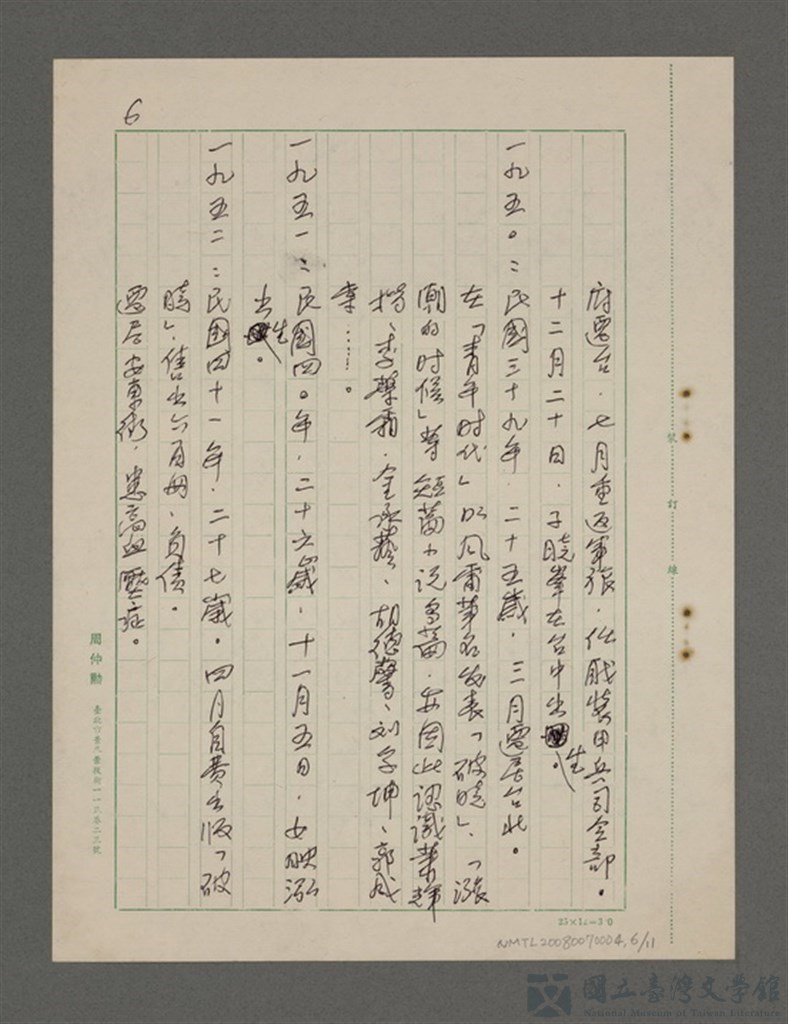 6
府遷台．七月重返軍旅．任職裝甲兵司令部。
十二月二十日．子曉峯在台中出生。
一九五〇：民國三十九年．二十五歲．三月遷居台北。
在「青年时代」以风雷筆名发表「破曉」、「漲
潮的时候」等短篇小说多篇．並因此認識葉
楊、李馨霜．金
一九五一：民國四〇年．二十六歲．十一月五日．女映泓
出生。
一九五二：民國四十一年．二十七歲．四月自费出版「破
曉」．售出六百册、負债。
遷居安東街．患高血壓症。
周仲勳
裝訂線
25×12=30
NMTL20080070004, 6/11
國立臺灣文學館
National Museum of Taiwan Literature